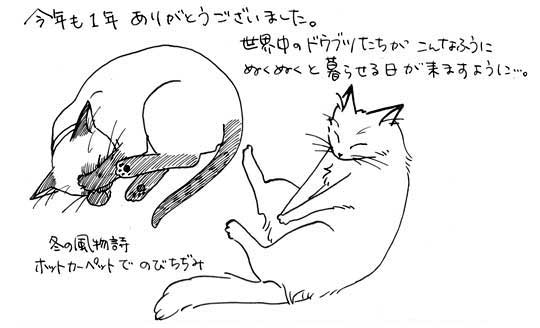 今年も1年 ありがとうございました。
世界中のドウブツたちが こんなふうに
ぬくぬくと 暮らせる日が来ますように…。
冬の風物詩
ホットカーペットで のびちぢみ